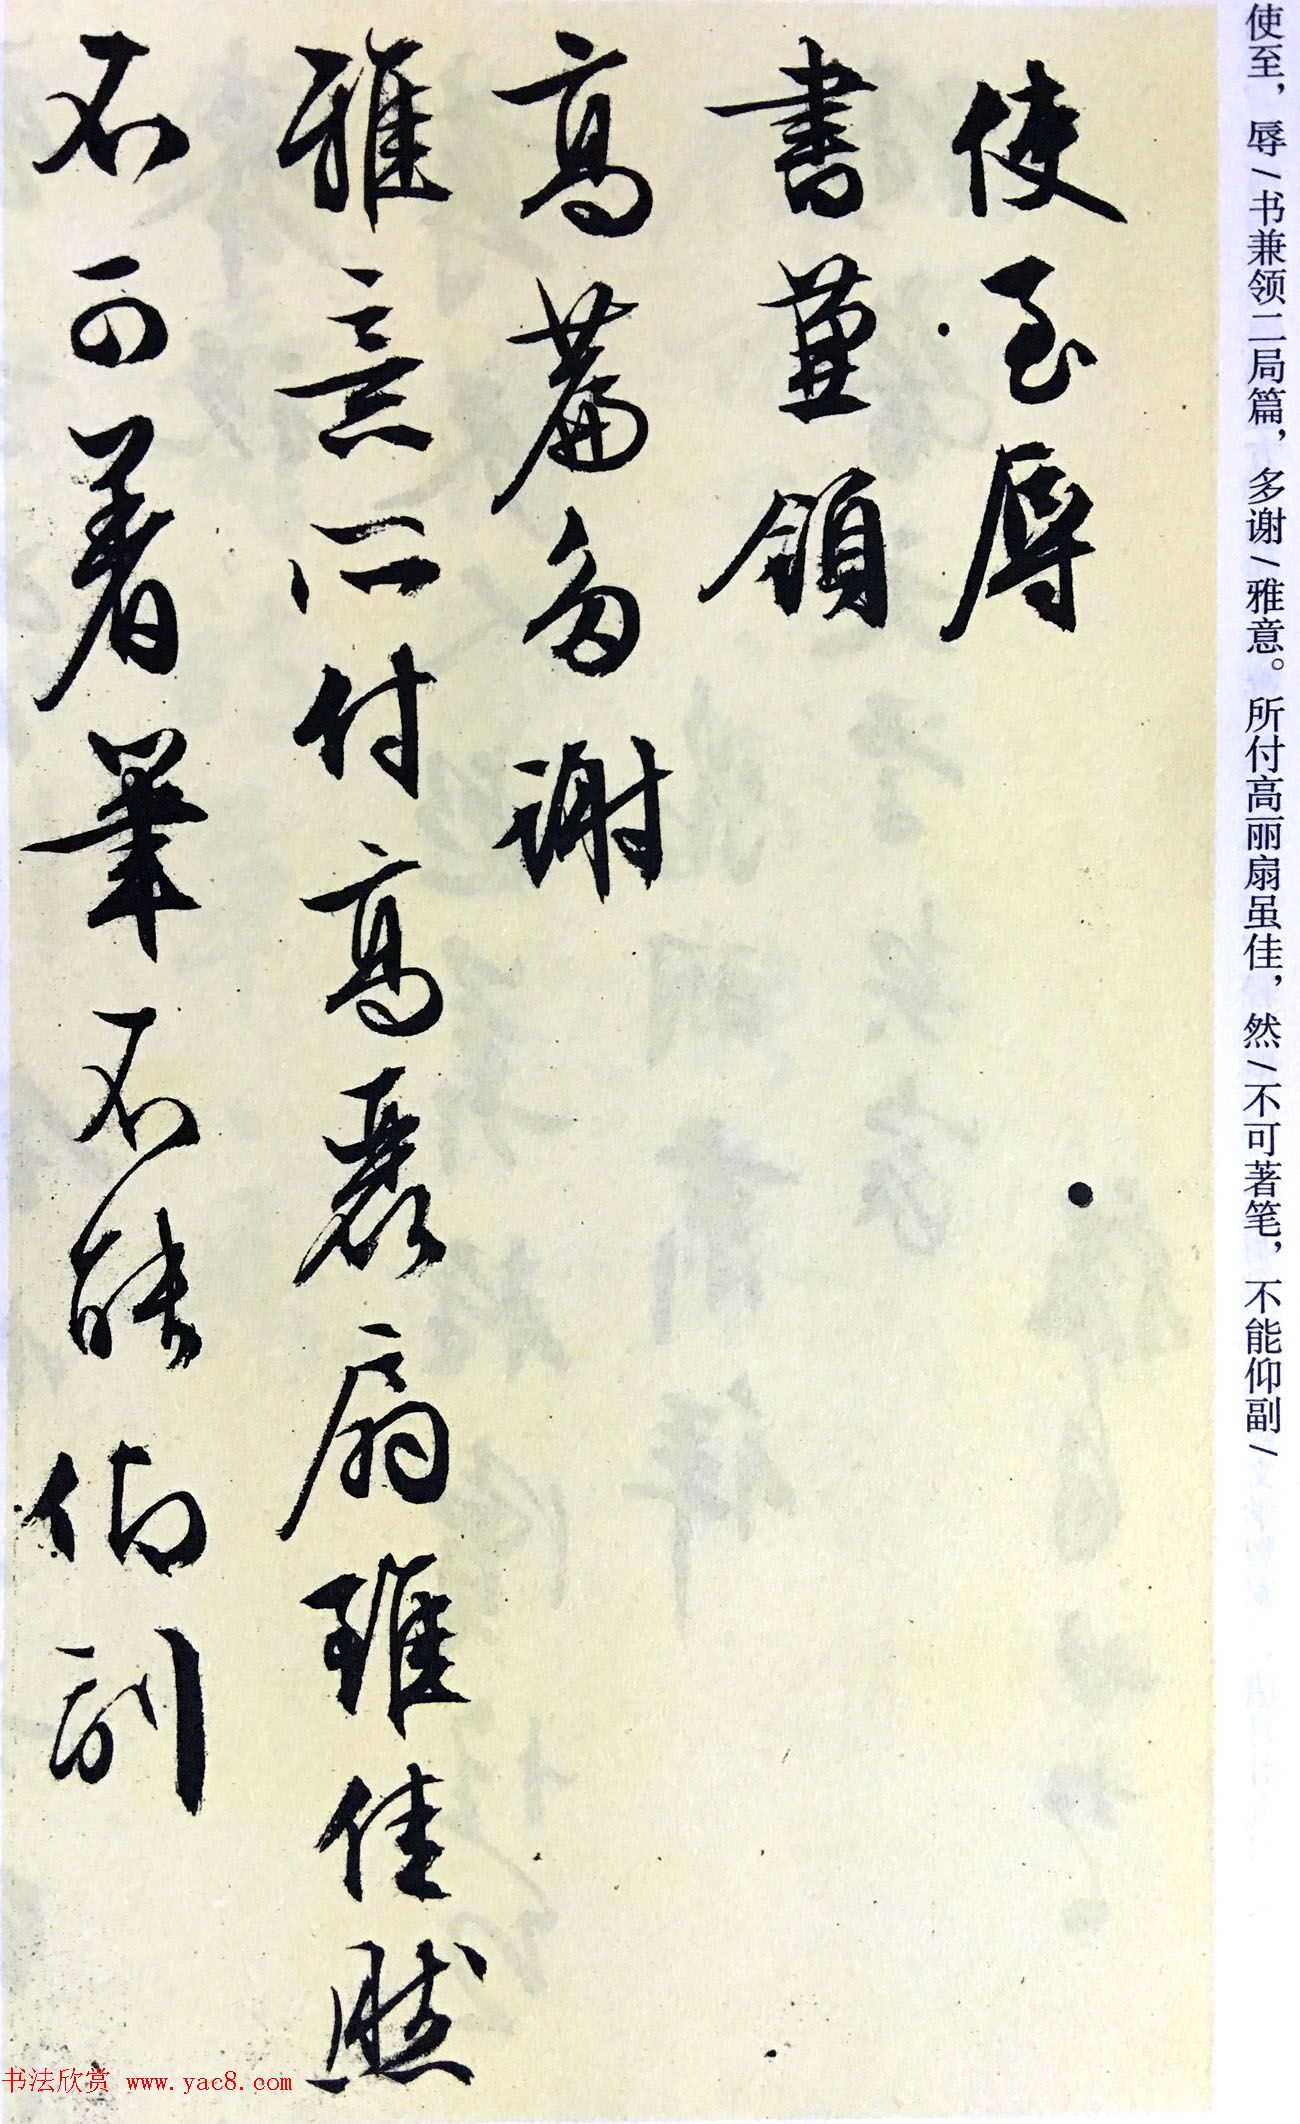 使至，辱/书兼领二局篇，多谢/雅意。所付高丽扇虽佳，然/不可著笔，不能仰副/
使至辱
書兼領
高篇多謝
雅意所付高麗扇雖佳然
不可著筆不能仰副
书法欣赏 www.yac8.com